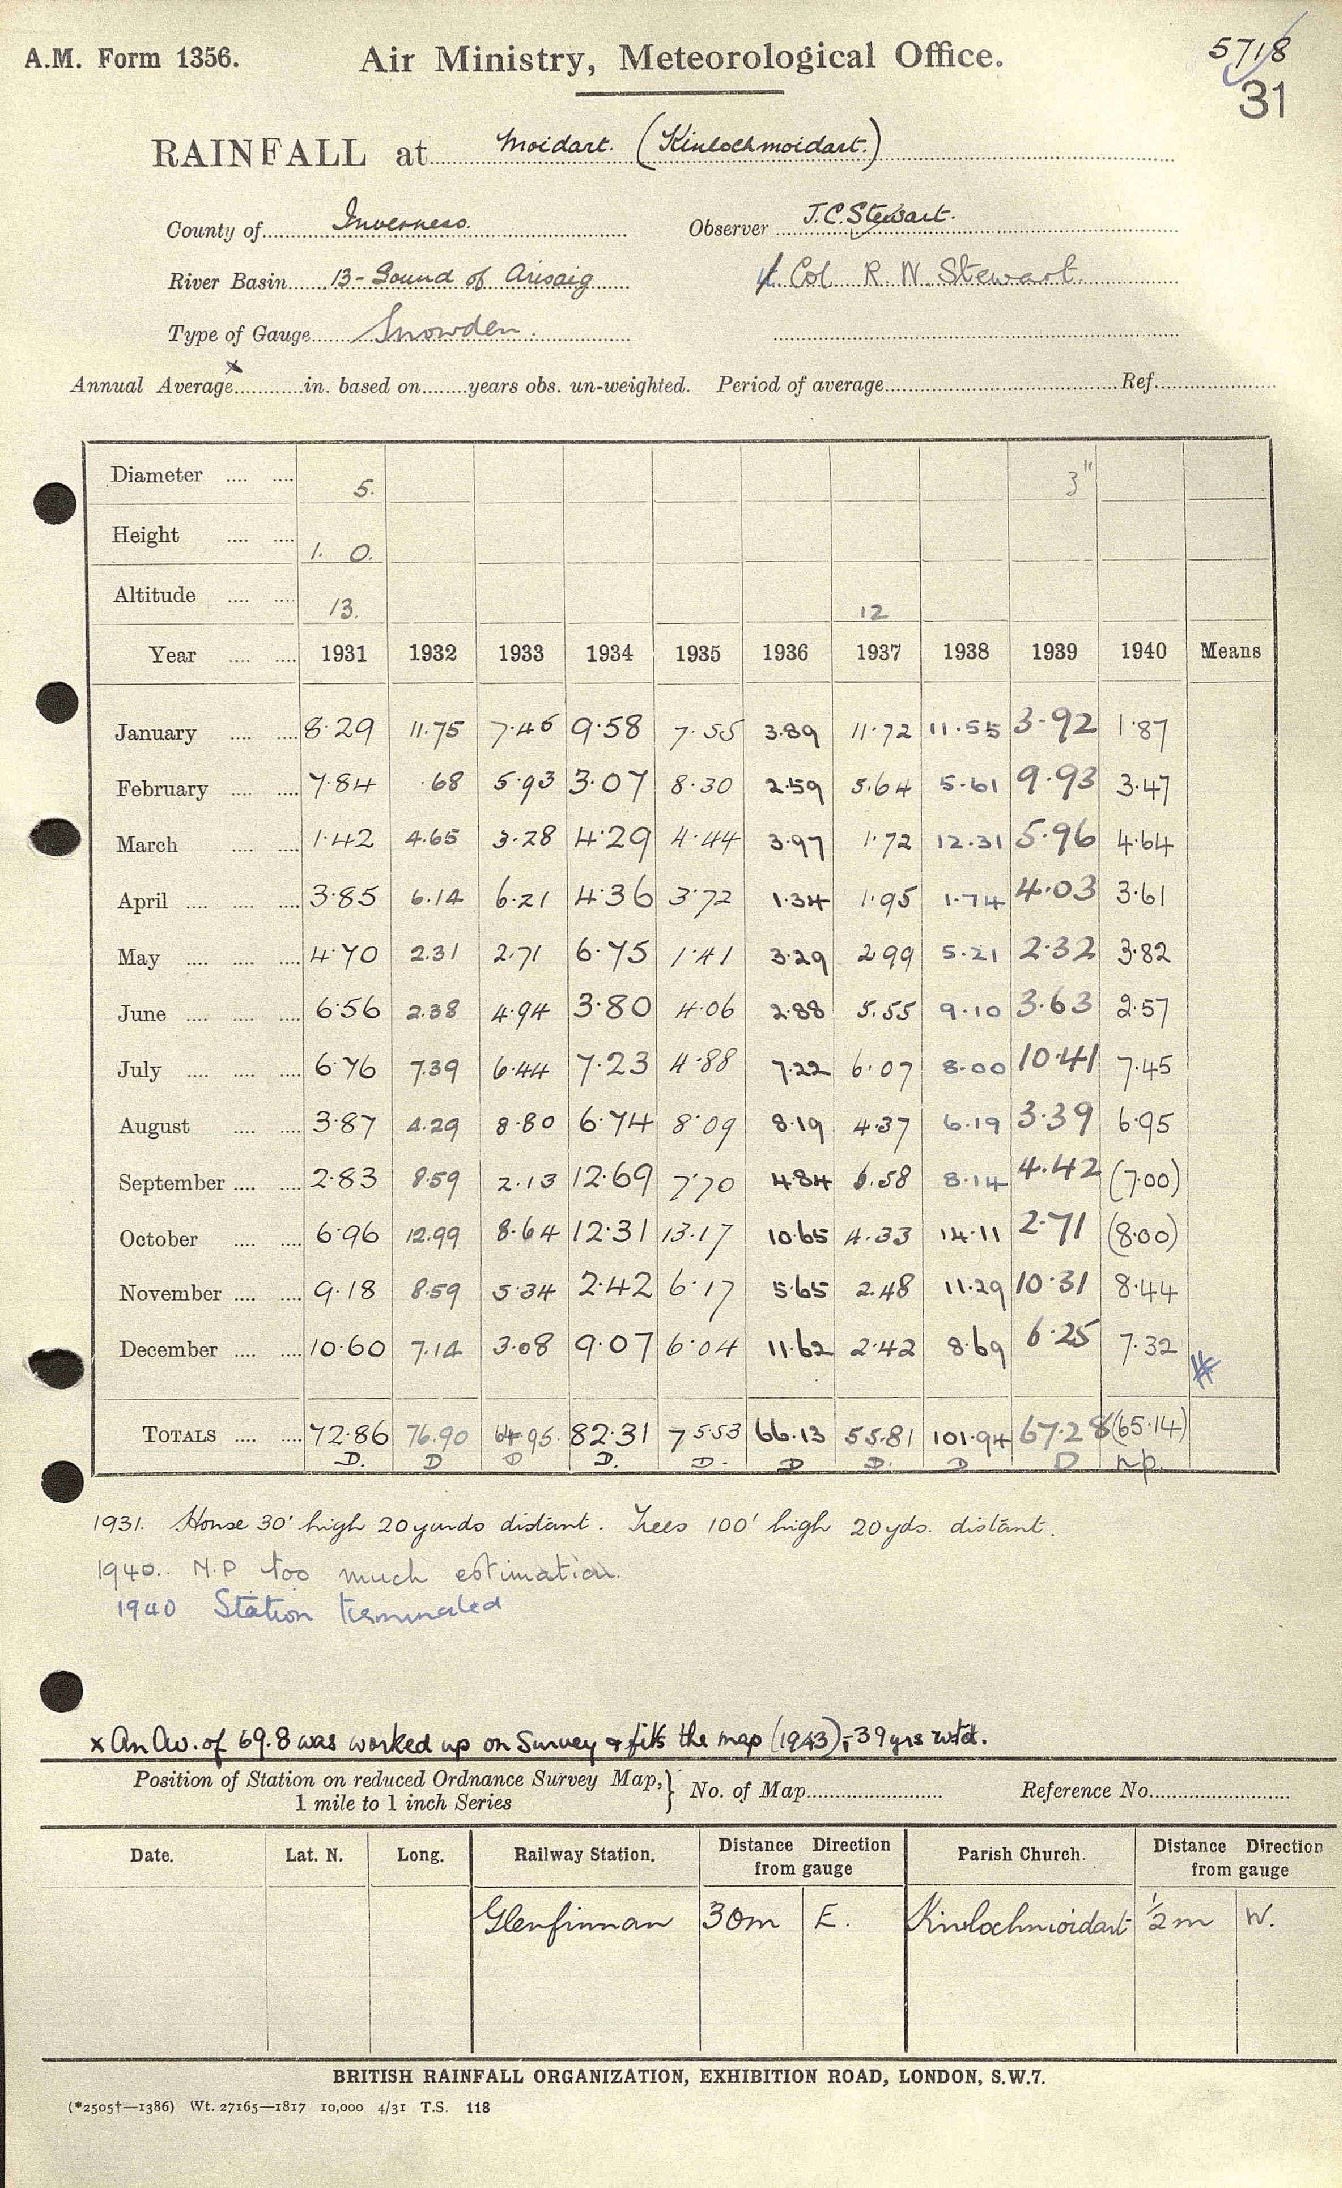 A.M. Form 1356. Air Ministry, Meteorological Office. 5718
31
RAINFALL at Moidart. (Kinlochmoidart.)
County of Inverness. Observer J.C. Stewart.
River Basin 13 - Sound of Arisaig Lt. Col R. N. Stewart.
Type of Gauge Snowden.
Annual Average x in. based on years obs. un-weighted. Period of average Ref.
Diameter 5. 3"
Height 1. 0.
Altitude 13. 12
Year 1931 1932 1933 1934 1935 1936 1937 1938 1939 1940 Means
January 8·29 11.75 7·46 9·58 7·55 3·89 11·72 11·55 3·92 1·87
February 7·84 ·68 5·93 3·07 8·30 2·59 5·64 5·61 9·93 3·47
March 1·42 4.65 3·28 4·29 4·44 3·97 1·72 12·31 5·96 4·64
April 3·85 6.14 6·21 4·36 3·72 1·34 1·95 1·74 4·03 3·61
May 4·70 2.31 2·71 6·75 1·41 3·29 2·99 5·21 2·32 3·82
June 6·56 2.38 4·94 3·80 4·06 2·88 5·55 9·10 3·63 2·57
July 6·76 7.39 6·44 7·23 4·88 7·22 6·07 8·00 10·41 7·45
August 3·87 4.29 8·80 6·74 8·09 8·19 4·37 6·19 3·39 6·95
September 2·83 8·59 2·13 12·69 7·70 4·84 6·58 8·14 4·42 (7·00)
October 6·96 12.99 8·64 12·31 13·17 10·65 4·33 14·11 2·71 (8·00)
November 9·18 8·59 5·34 2·42 6·17 5·65 2·48 11·29 10·31 8·44
December 10·60 7.14 3·08 9·07 6·04 11·62 2·42 8·69 6·25 7·32
TOTALS 72·86 76.90 64·95 82·31 75·53 66·13 55·81 101·94 67·28 (65·14)
D. D D D. D. D D. D D n.p.
1931. House 30' high 20 yards distant. Trees 100' high 20 yds. distant.
1940.. N.P too much estimation.
1940 Station terminated
x An Av. of 69.8 was worked up on Survey & fits the map (1943);- 39 yrs wtd.
Position of Station on reduced Ordnance Survey Map,} No. of Map Reference No.
1 mile to 1 inch Series
Date. Lat. N. Long. Railway Station. Distance Direction from gauge Parish Church. Distance Direction from gauge
Glenfinnan 30m E. Kinlochmoidart ½m W.
BRITISH RAINFALL ORGANIZATION, EXHIBITION ROAD, LONDON, S.W.7.
(*2505†—1386) Wt. 27165—1817 10,000 4/31 T.S. 118